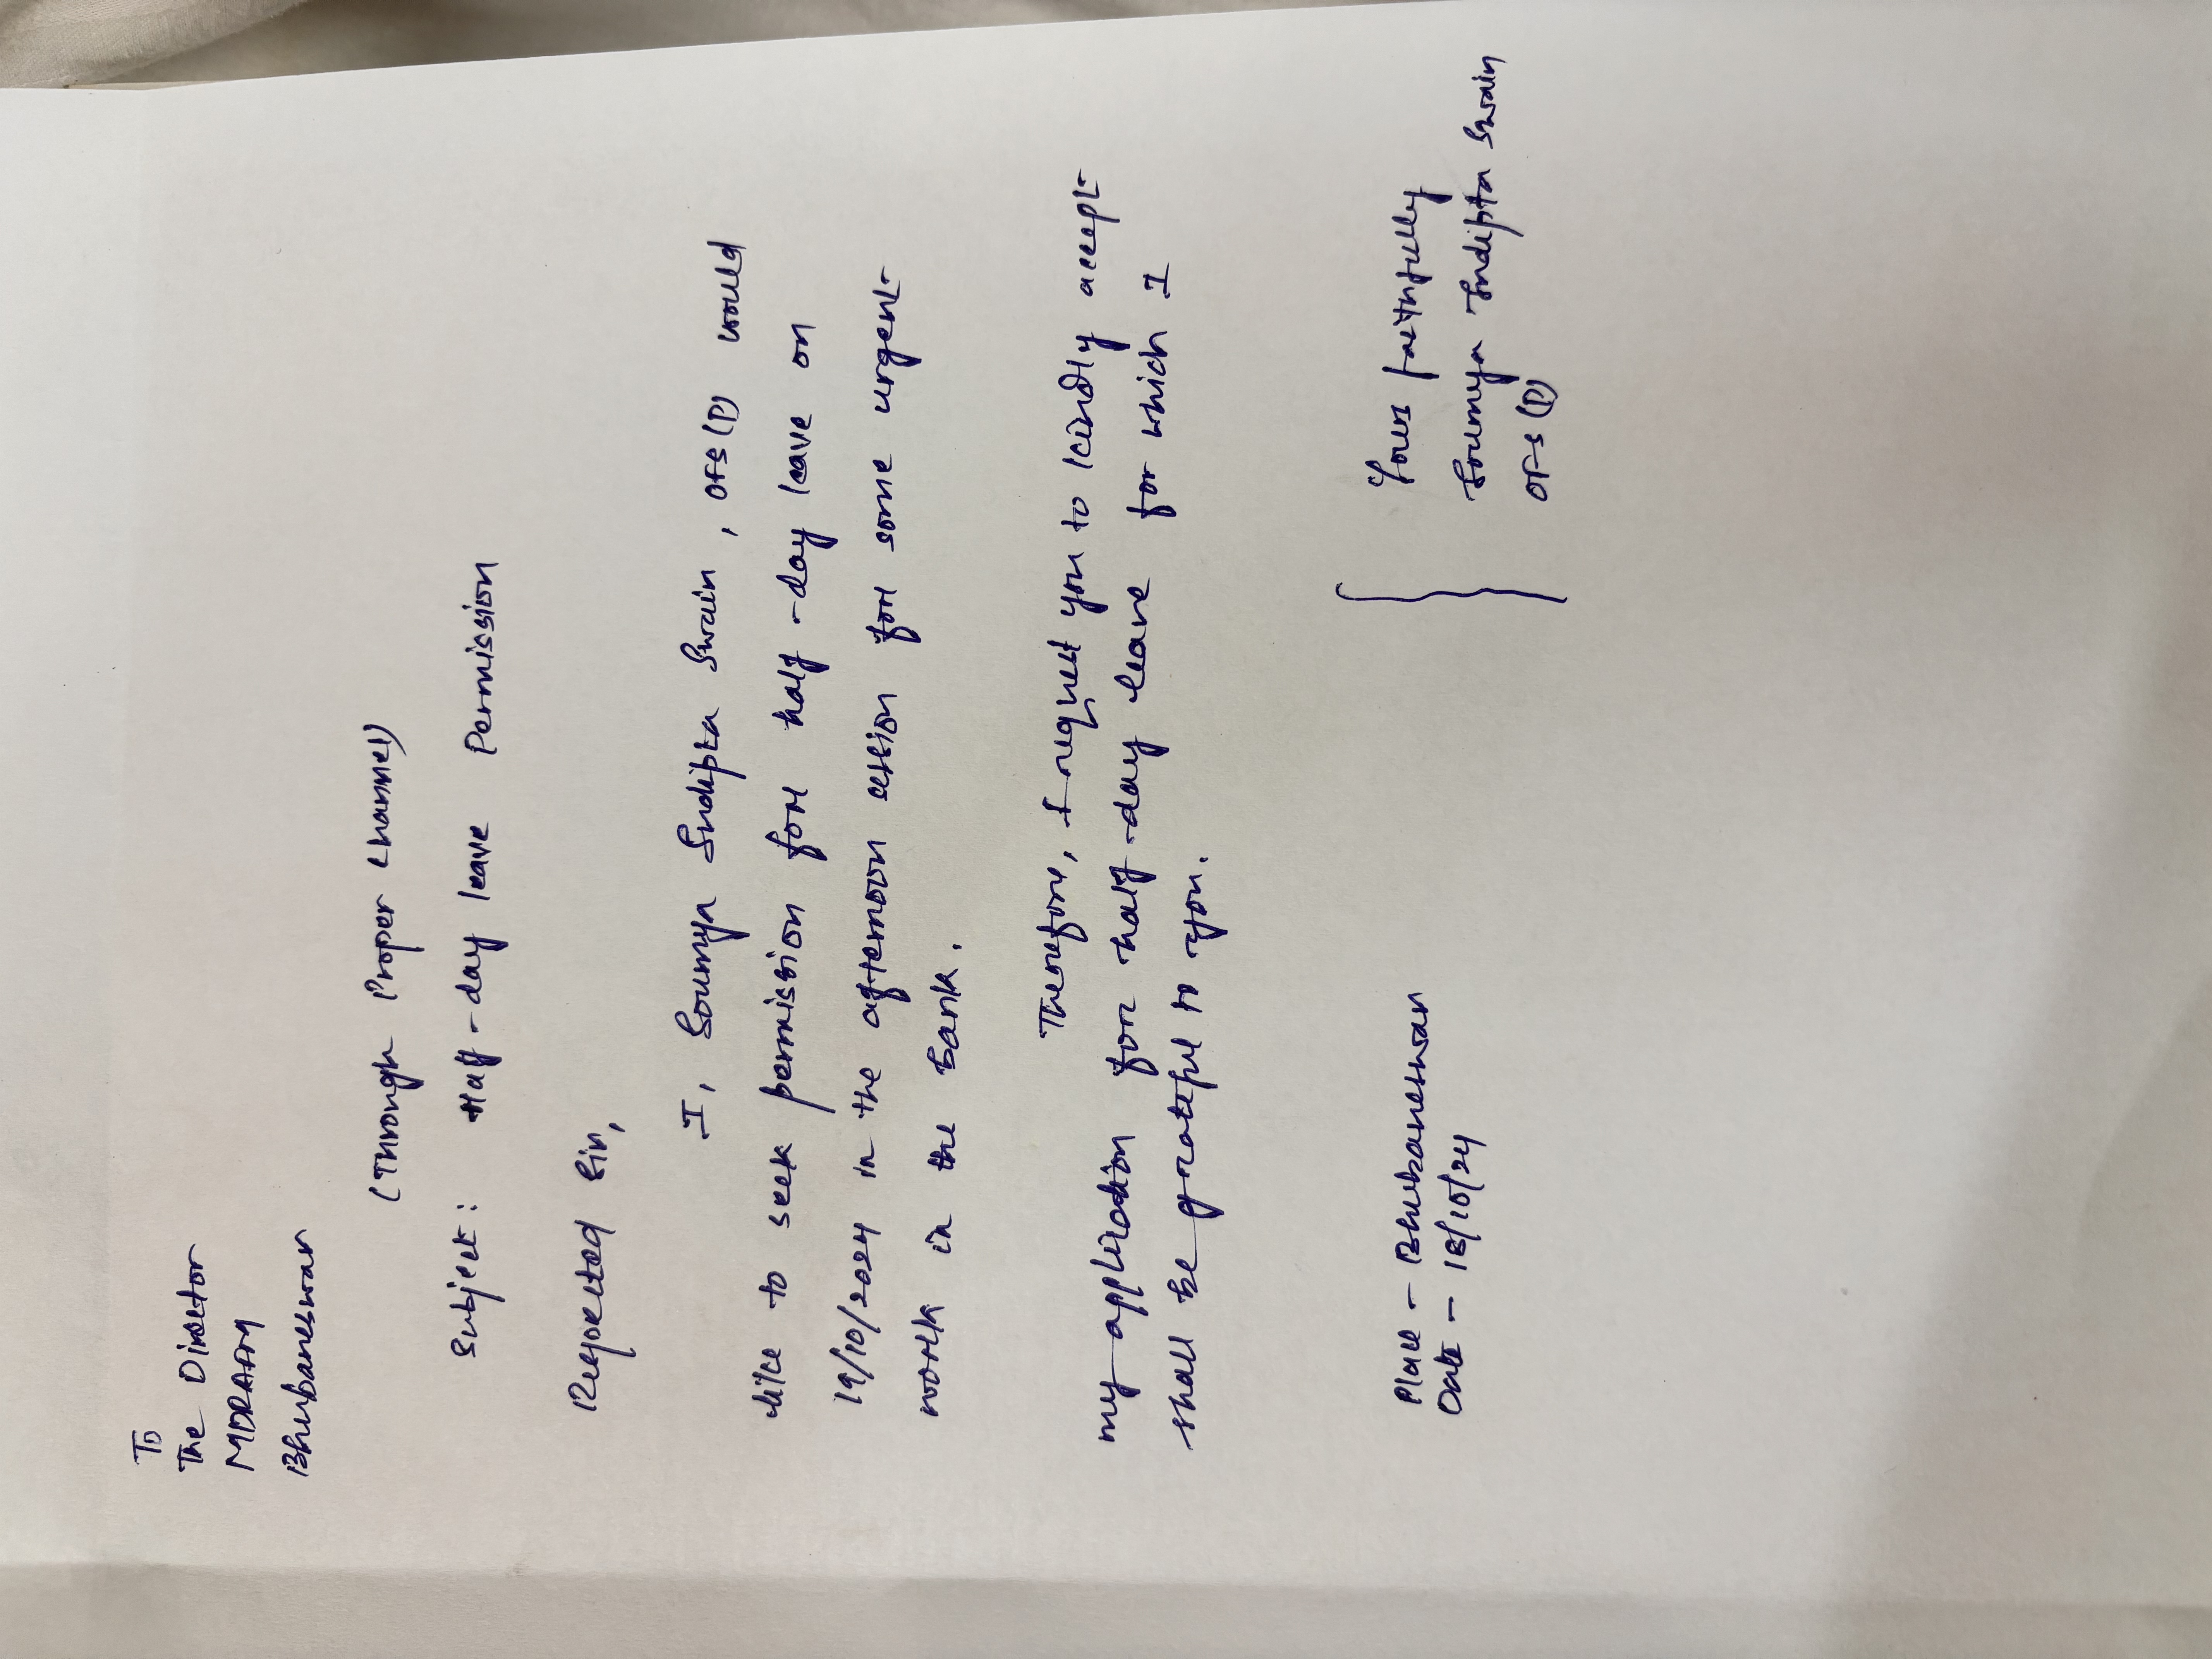 To
The Director
MDRAFM
Bhubaneswar
(Through Proper Channel)
Subject: Half-day leave Permission
Respected Sir,
I, Soumya Sudipta Swain, OFS(P) would
like to seek permission for half-day leave on
19/10/2024 in the afternoon session for some urgent
work in the bank.
Therefore, I request you to kindly accept
my application for half-day leave for which I
shall be grateful to you.
Place - Bhubaneswar
Date - 18/10/24
Yours faithfully
Soumya Sudipta Swain
OFS (P)